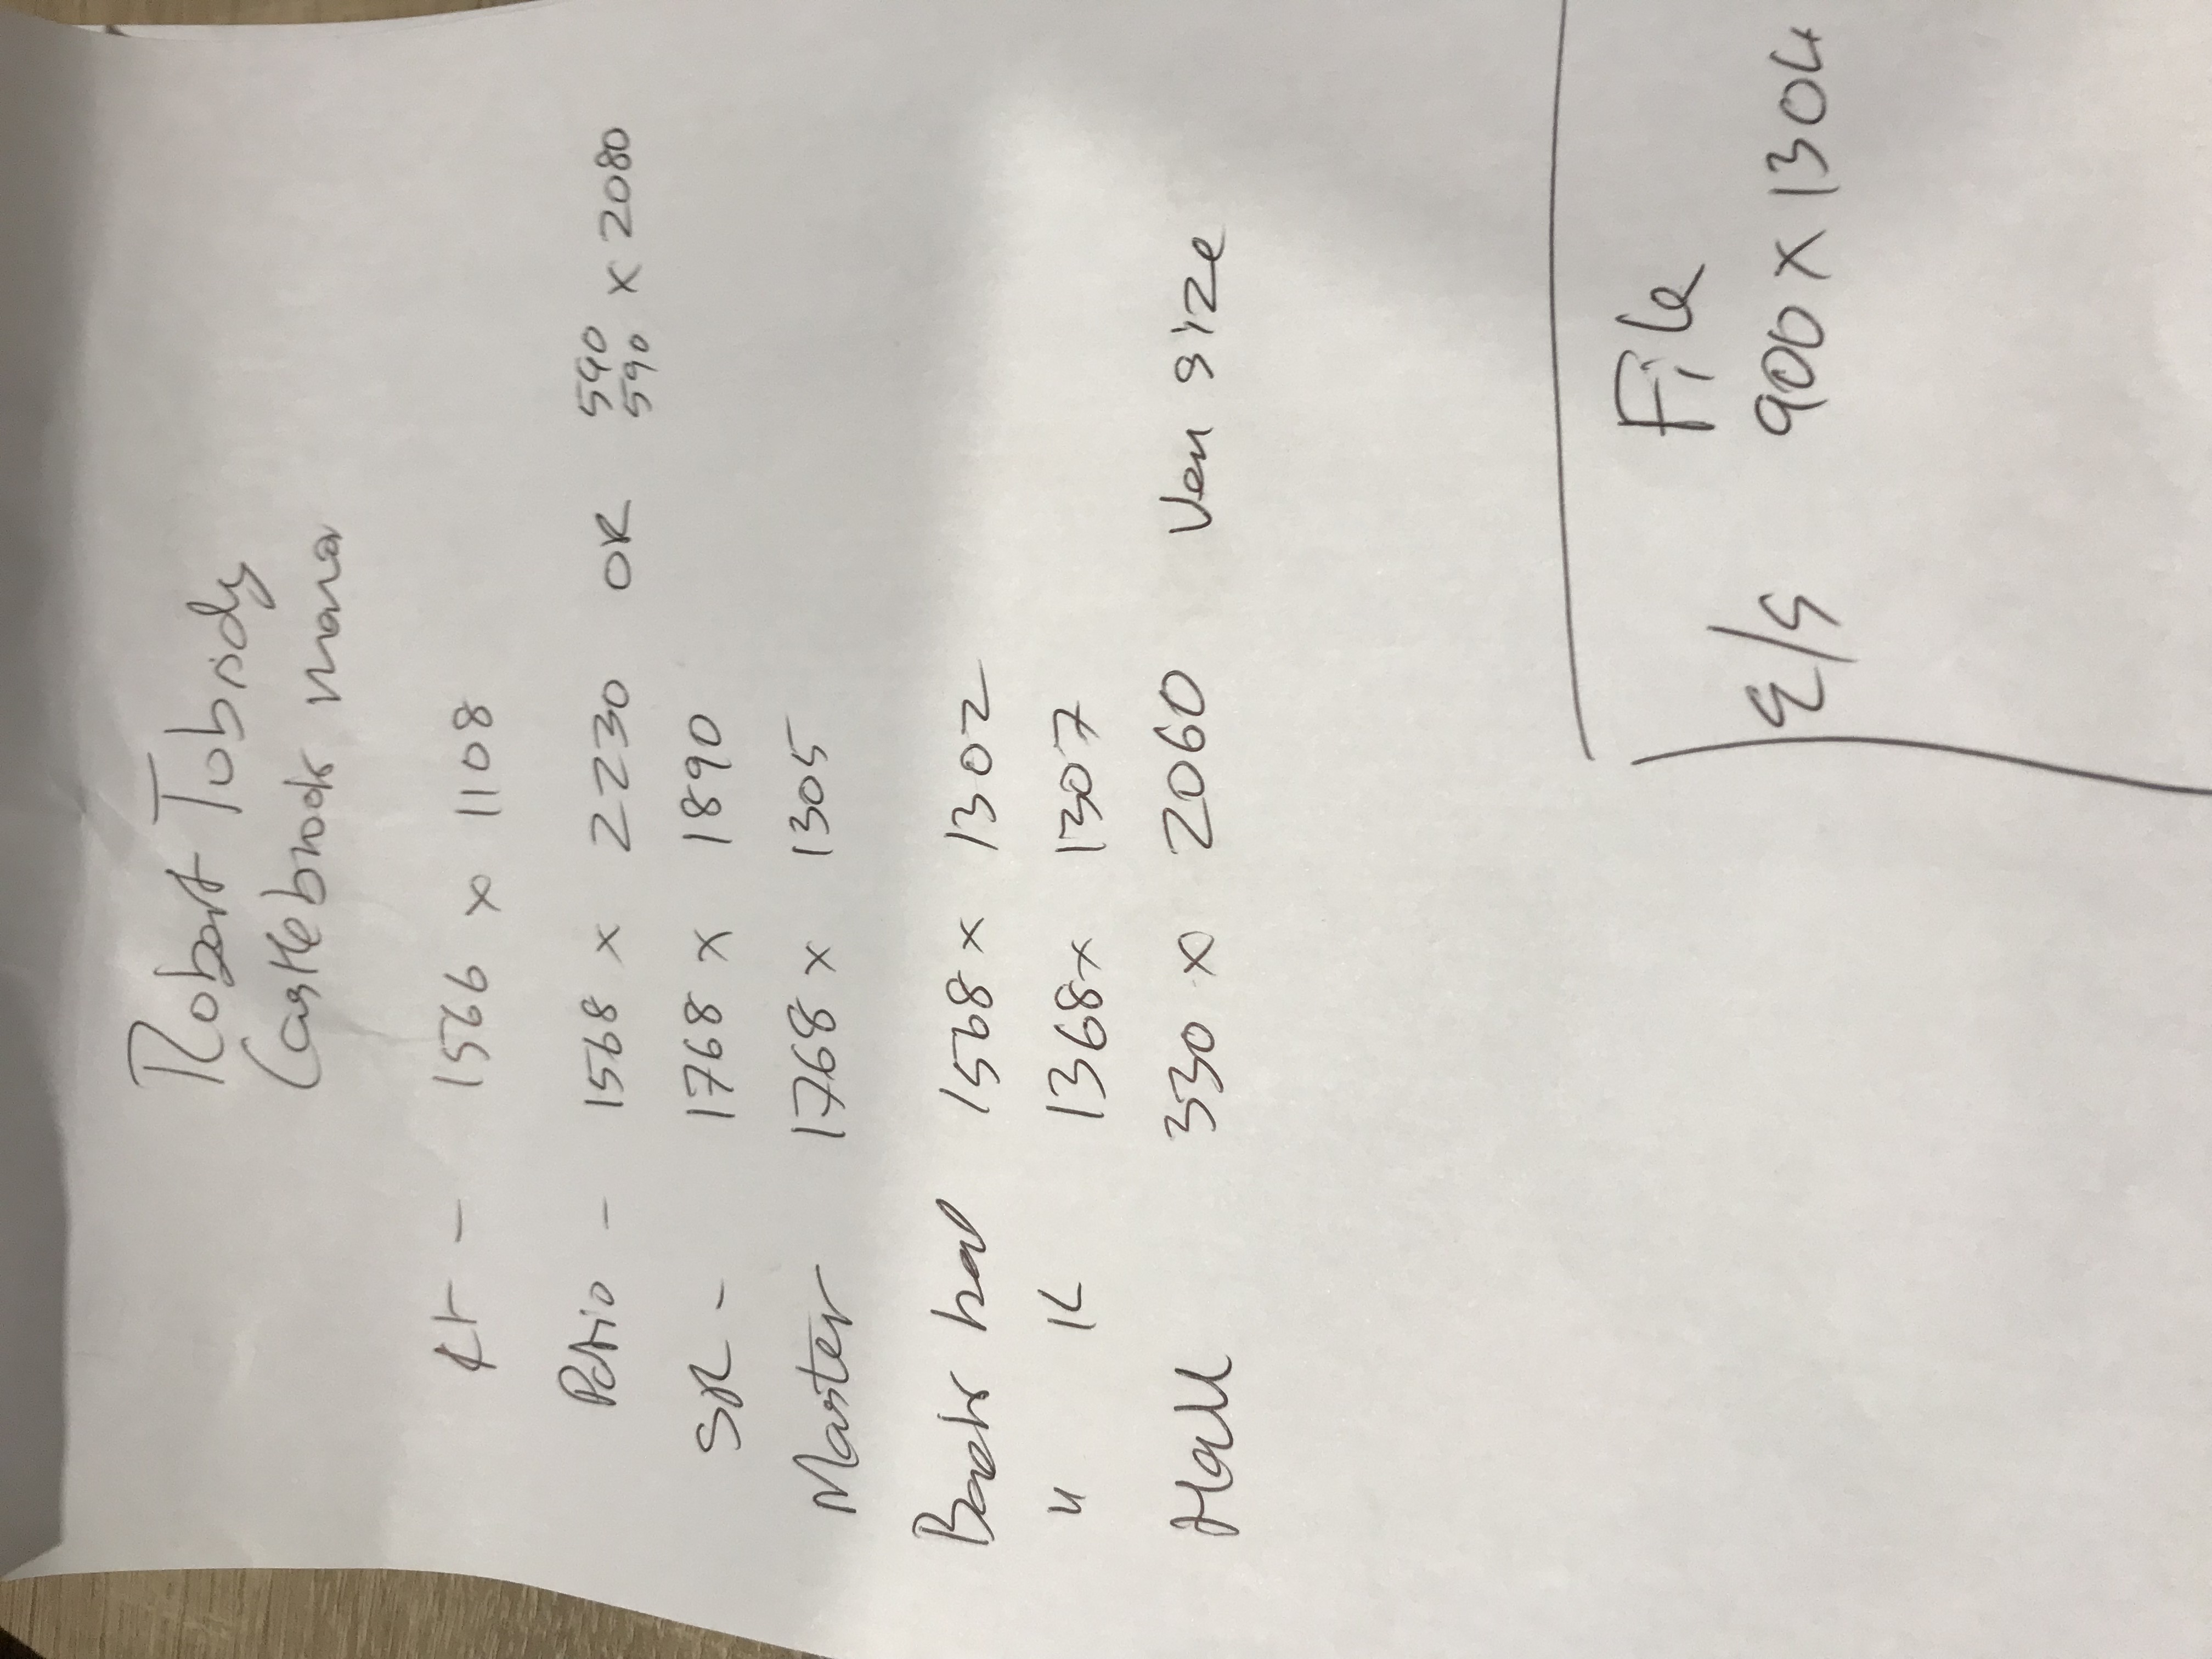 Robert Tobridy
Castlebrook manor
Kt - 1566 x 1108
Patio - 1568 x 2230 OR 590 590 x 2080
SR - 1768 x 1890
Master 1768 x 1305
Back 1568 x 1302
" 1368 x 1307
Hall 330 x 2060 Ven size
File
E/S 900 x 1304